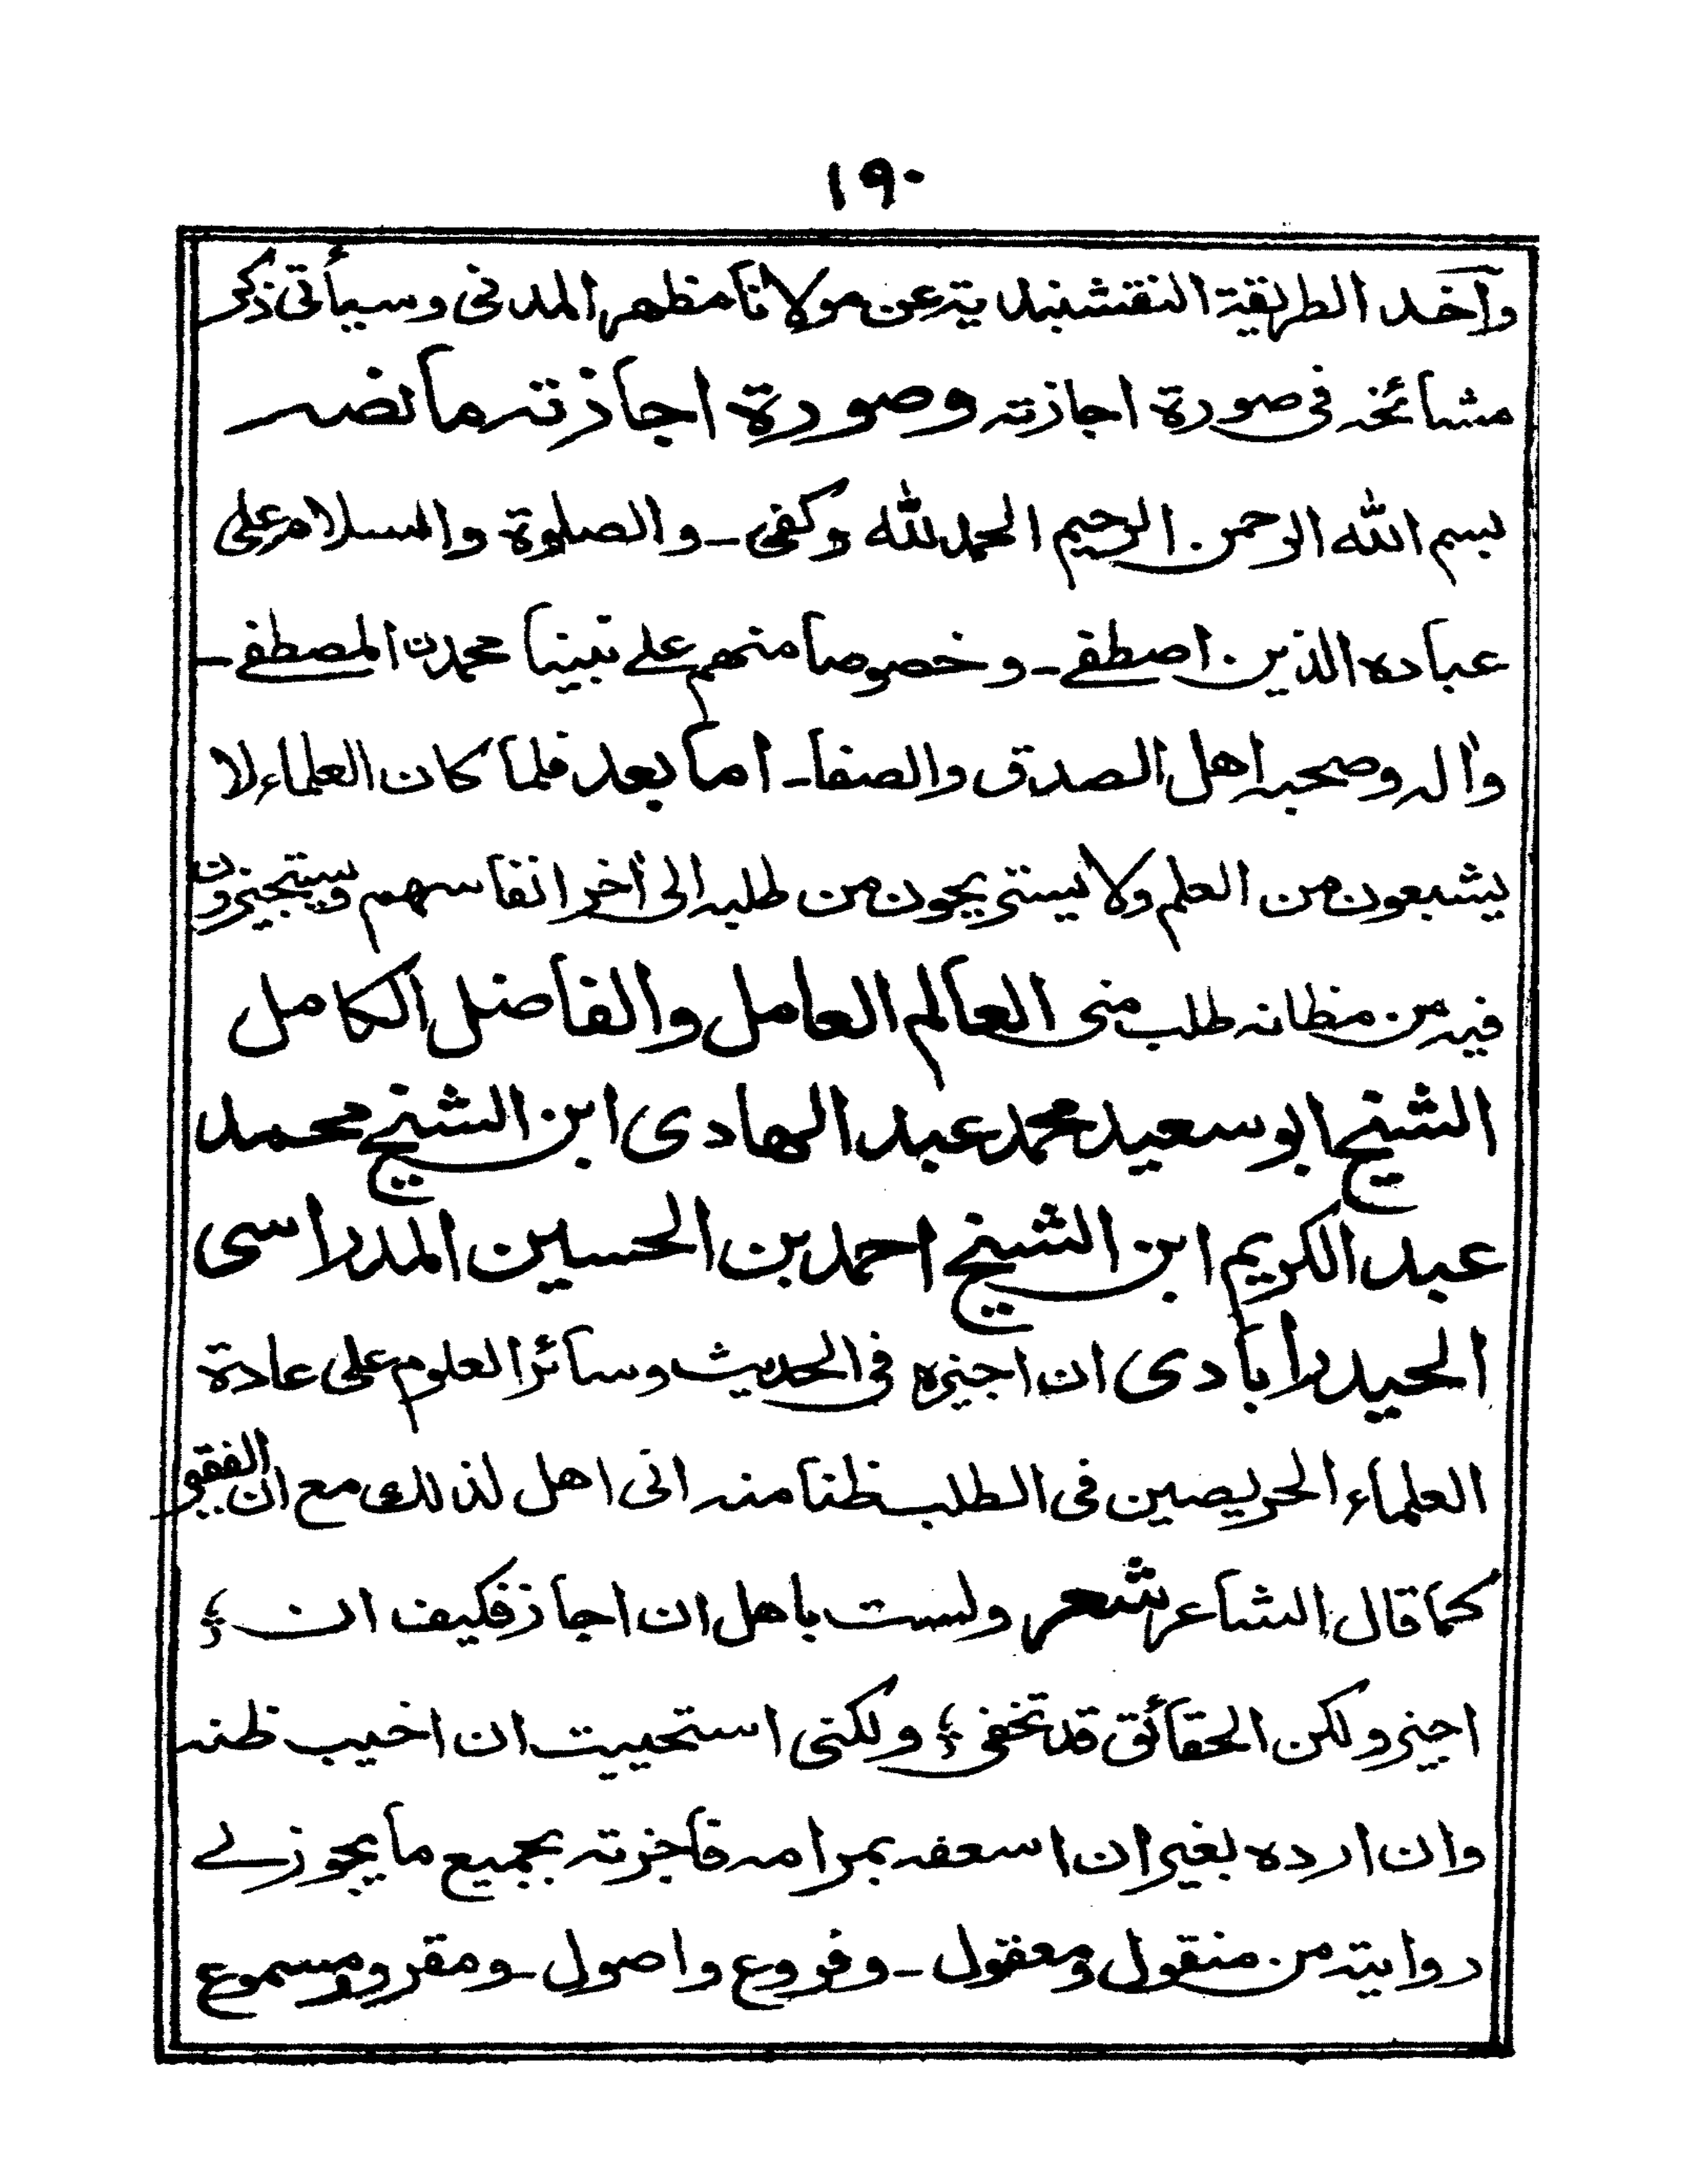 ١٩٠
وآخذ الطريقة النقشبندية عن مولانا مظهر المدني وسيأتي ذكر
مشائخه في صورة اجازته وصورة اجازته ما نصه
بسم الله الرحمن الرحيم الحمد لله وكفى ـ والصلوة والسلام على
عباده الذين اصطفے ـ وخصوصا منهم علے نبينا محمدن المصطفے ـ
واٰله وصحبه اهل الصدق والصفا ـ اما بعد فلما كان العلماء لا
يشبعون من العلم ولا يستريحون من طلبه الى اٰخر انفاسهم ويستجيزون
فيه من مظانه طلب منى العالم العامل والفاضل الكامل
الشيخ ابو سعيد محمد عبد الهادى ابن الشيخ محمد
عبد الكريم ابن الشيخ احمد بن الحسين المدراسى
الحيدراٰبادى ان اجيزه في الحديث وسائر العلوم على عادة
العلماء الحريصين في الطلب ظنا منه انى اهل لذلك مع ان الفقير
كما قال الشاعر شعر ولست باهل ان اجاز فكيف ان ؛
اجيز ولكن الحقائق قد تخفى ؛ ولكنى استحييت ان اخيب ظنه
وان ارده بغير ان اسعفه بمرامه فاجزته بجميع ما يجوز لے
روايته من منقول ومعقول ـ وفروع واصول ـ ومقرو ومسموع